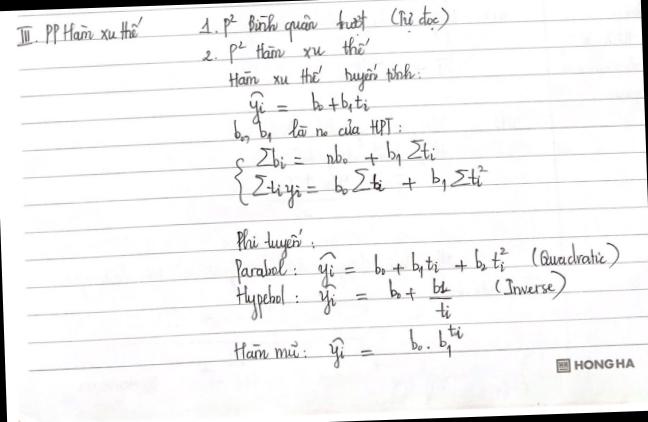 III. PP Hàm xu thế
1. P² Bình quân trượt (Tự đọc)
2. P² Hàm xu thế
Hàm xu thế tuyến tính:
ŷi = b₀ + b₁ti
b₀, b₁ là no của HPT:
Σbi = nb₀ + b₁Σti
Σtiyi = b₀Σti + b₁Σti²
Phi tuyến:
Parabol: ŷi = b₀ + b₁ti + b₂ti² (Quadratic)
Hypebol: ŷi = b₀ + b1/ti (Inverse)
Hàm mũ: ŷi = b₀ . b₁^ti
HONG HA